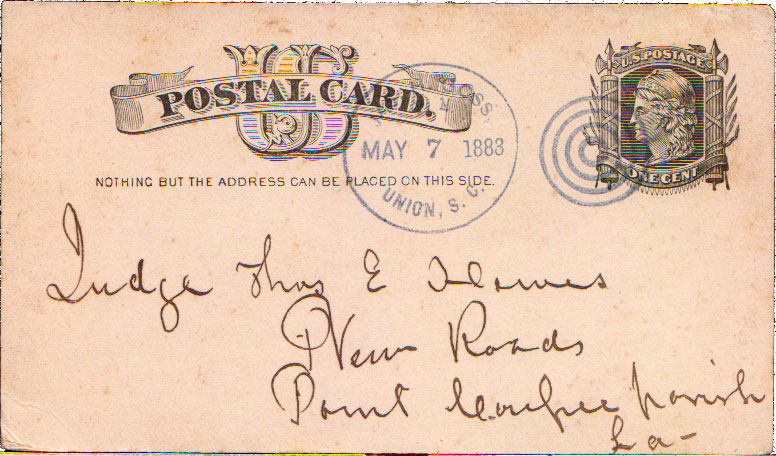 US
POSTAL CARD.
U.S. POSTAGE
ONE CENT
MAY 7 1883
UNION, S. C.
NOTHING BUT THE ADDRESS CAN BE PLACED ON THIS SIDE.
Judge Thos E Flowers
New Roads
Point Coupee Parish
La-